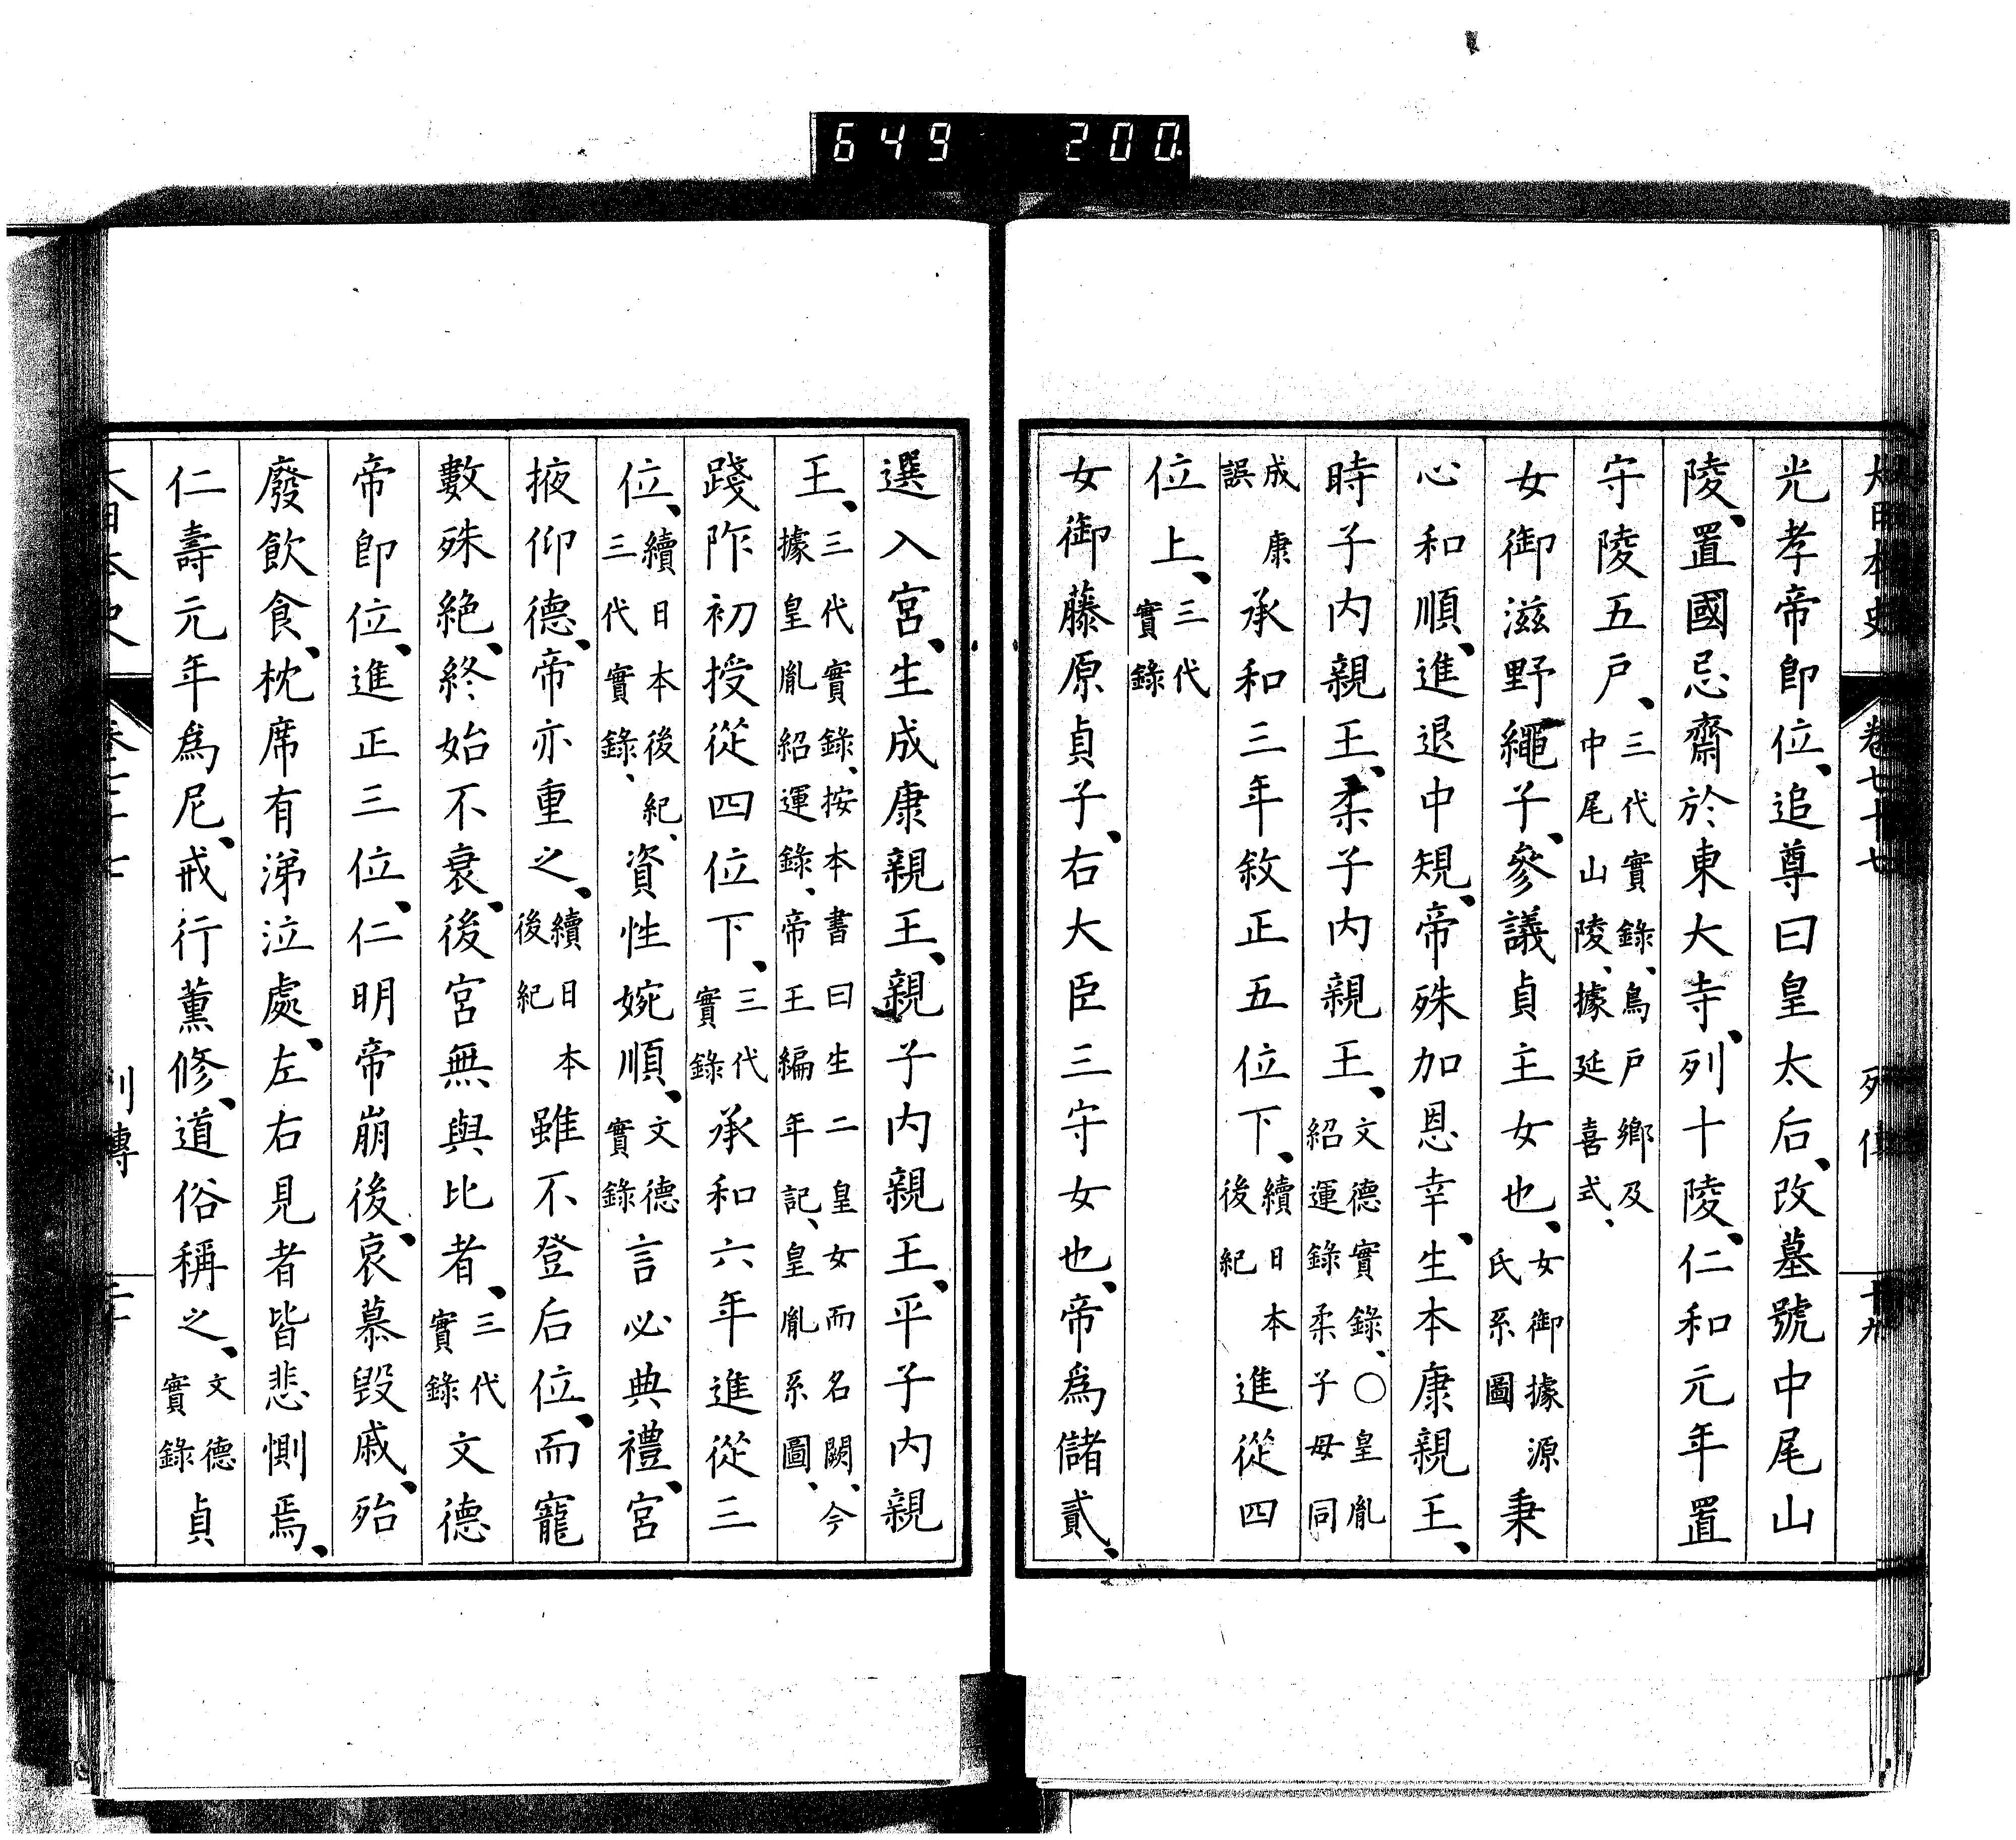 649 200.
大日本史 卷七十七 列傳 十九
光孝帝即位、追尊曰皇太后、改墓號中尾山
陵、置國忌齋於東大寺、列十陵、仁和元年置
守陵五戸、三代實錄、鳥戸鄉及中尾山陵、據延喜式、
女御滋野繩子、參議貞主女也、女御據源氏系圖秉
心和順、進退中規、帝殊加恩幸、生本康親王、
時子內親王、柔子內親王、文德實錄、〇皇胤紹運錄柔子母同
成康誤承和三年敘正五位下、續日本後紀進從四
位上、三代實錄
女御藤原貞子、右大臣三守女也、帝爲儲貳、
選入宮、生成康親王、親子內親王、平子內親
王、三代實錄、按本書曰生二皇女而名闕、今據皇胤紹運錄、帝王編年記、皇胤系圖、
踐阼初授從四位下、三代實錄承和六年進從三
位、續日本後紀、三代實錄、資性婉順、文德實錄言必典禮、宮
掖仰德、帝亦重之、續日本後紀雖不登后位、而寵
數殊絶、終始不衰、後宮無與比者、三代實錄文德
帝即位、進正三位、仁明帝崩後、哀慕毀戚、殆
廢飲食、枕席有涕泣處、左右見者皆悲惻焉、
仁壽元年爲尼、戒行薰修、道俗稱之、文德實錄貞
大日本史 卷七十七 列傳 二十